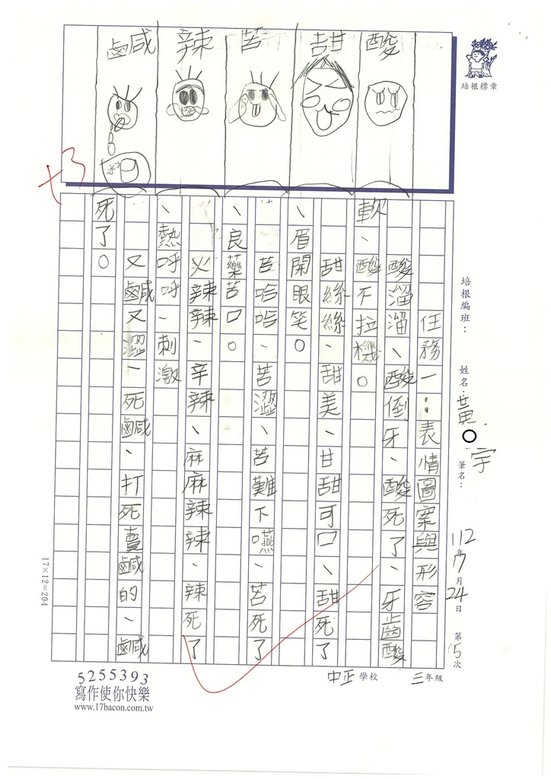 酸
甜
苦
辣
鹹
培根標章
+3
任務一：表情圖案與形容
酸溜溜、酸倒牙、酸死了、牙齒酸
軟、酸不拉機。
甜絲絲、甜美、甘甜可口、甜死了
、眉開眼笑。
苦哈哈、苦澀、苦難下嚥、苦死了
、良藥苦口。
火辣辣、辛辣、麻麻辣辣、辣死了
、熱呼呼、刺激
又鹹又澀、死鹹、打死賣鹹的、鹹
死了。
培根編班：
姓名：黃○宇
筆名：
112年7月24日 第15次
中正學校 三年級
17×12=204
5255393
寫作使你快樂
www.17bacon.com.tw